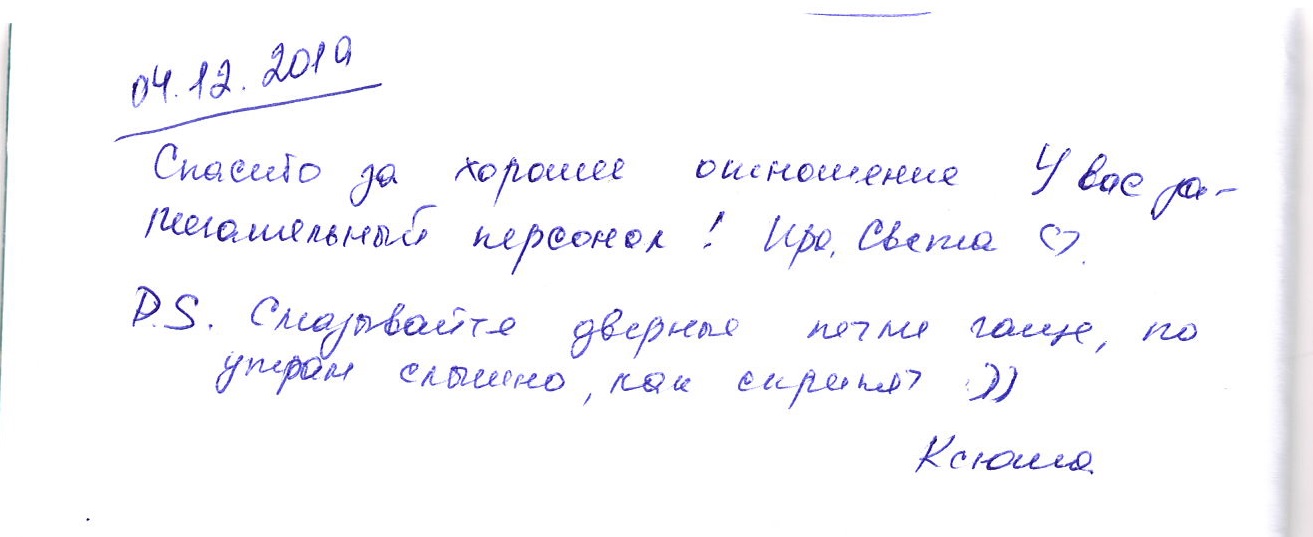 04.12.2019
Спасибо за хорошее отношение У вас за-
мечательный персонал! Ира, Света ♡.
P.S. Смазывайте дверные петли чаще, по
утрам слышно, как скрипят :))
Ксюша